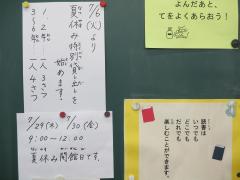 7/6(火)より
夏休み特別貸し出しを
始めます。
1.2年 4さつ
3～6年 一人3さつ
7/29(木) 7/30(金)
9:00～12:00
夏休み開館日です。
よんだあと、
てをよくあらおう！
読書は
いつでも
どこでも
だれでも
楽しむことができます。